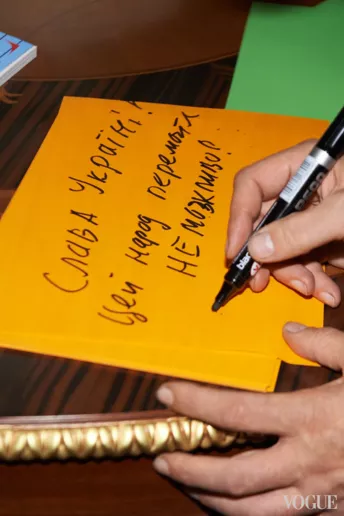 Слава Україні!
Цей народ перемогти
НЕ можливо!
blac
VOGUE